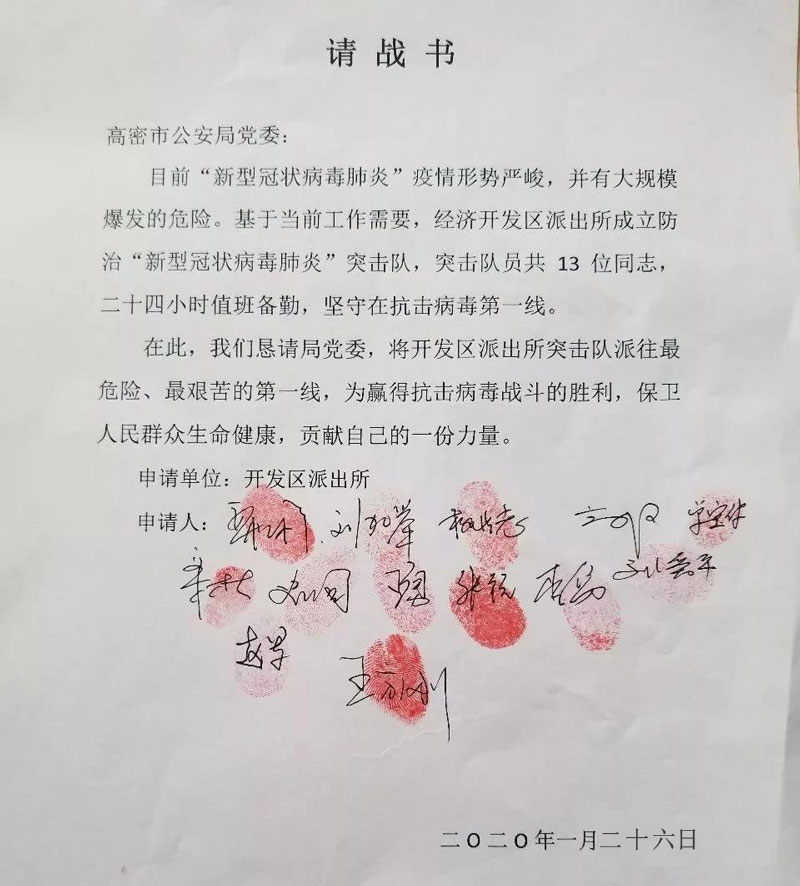 请战书
高密市公安局党委：
目前“新型冠状病毒肺炎”疫情形势严峻，并有大规模
爆发的危险。基于当前工作需要，经济开发区派出所成立防
治“新型冠状病毒肺炎”突击队，突击队员共 13 位同志，
二十四小时值班备勤，坚守在抗击病毒第一线。
在此，我们恳请局党委，将开发区派出所突击队派往最
危险、最艰苦的第一线，为赢得抗击病毒战斗的胜利，保卫
人民群众生命健康，贡献自己的一份力量。
申请单位：开发区派出所
申请人：
王 刚
二〇二〇年一月二十六日